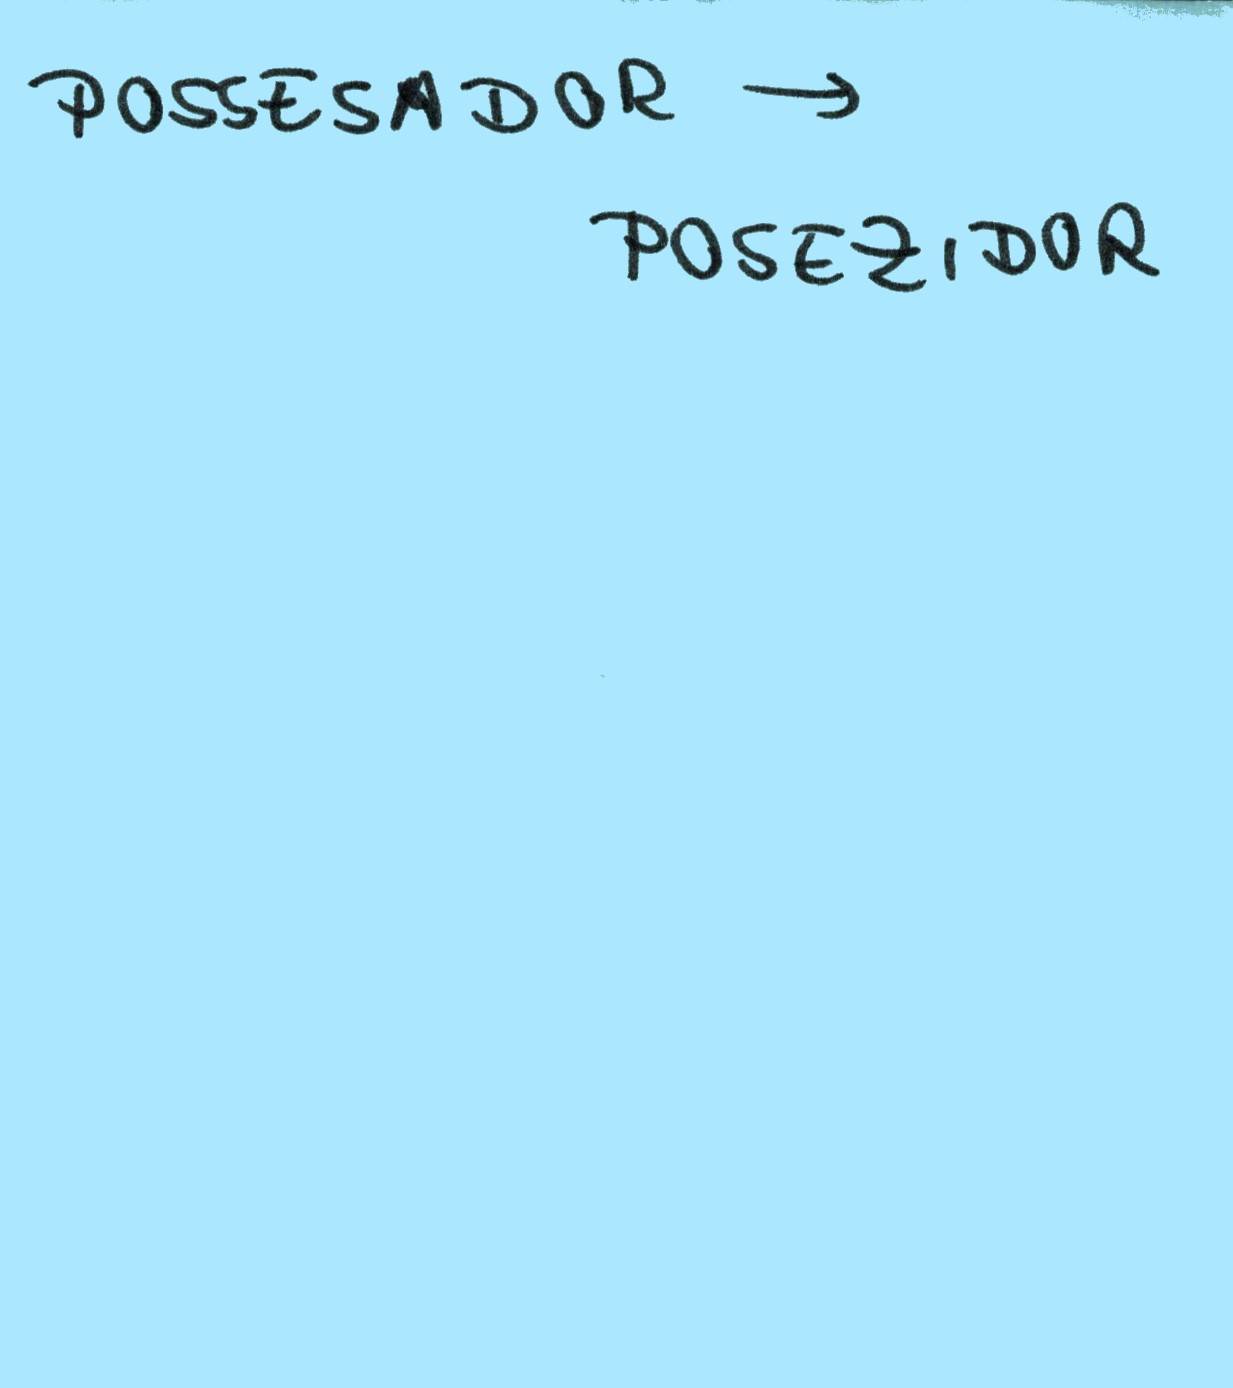 POSSESADOR →
POSEZIDOR